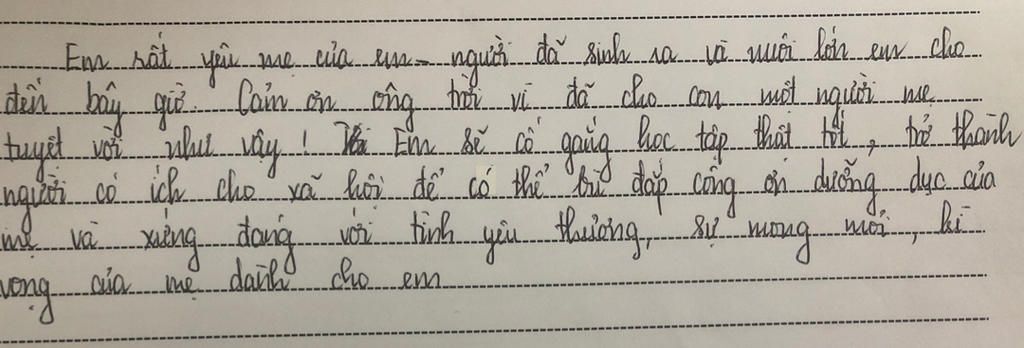 Em rất yêu mẹ của em - người đã sinh ra và nuôi lớn em cho
đến bây giờ. Cảm ơn ông trời vì đã cho con một người mẹ
tuyệt vời như vậy! Em sẽ cố gắng học tập thật tốt, trở thành
người có ích cho xã hội để có thể bù đắp công ơn dưỡng dục của
mẹ và xứng đáng với tình yêu thương, sự mong mỏi, kì
vọng của mẹ dành cho em